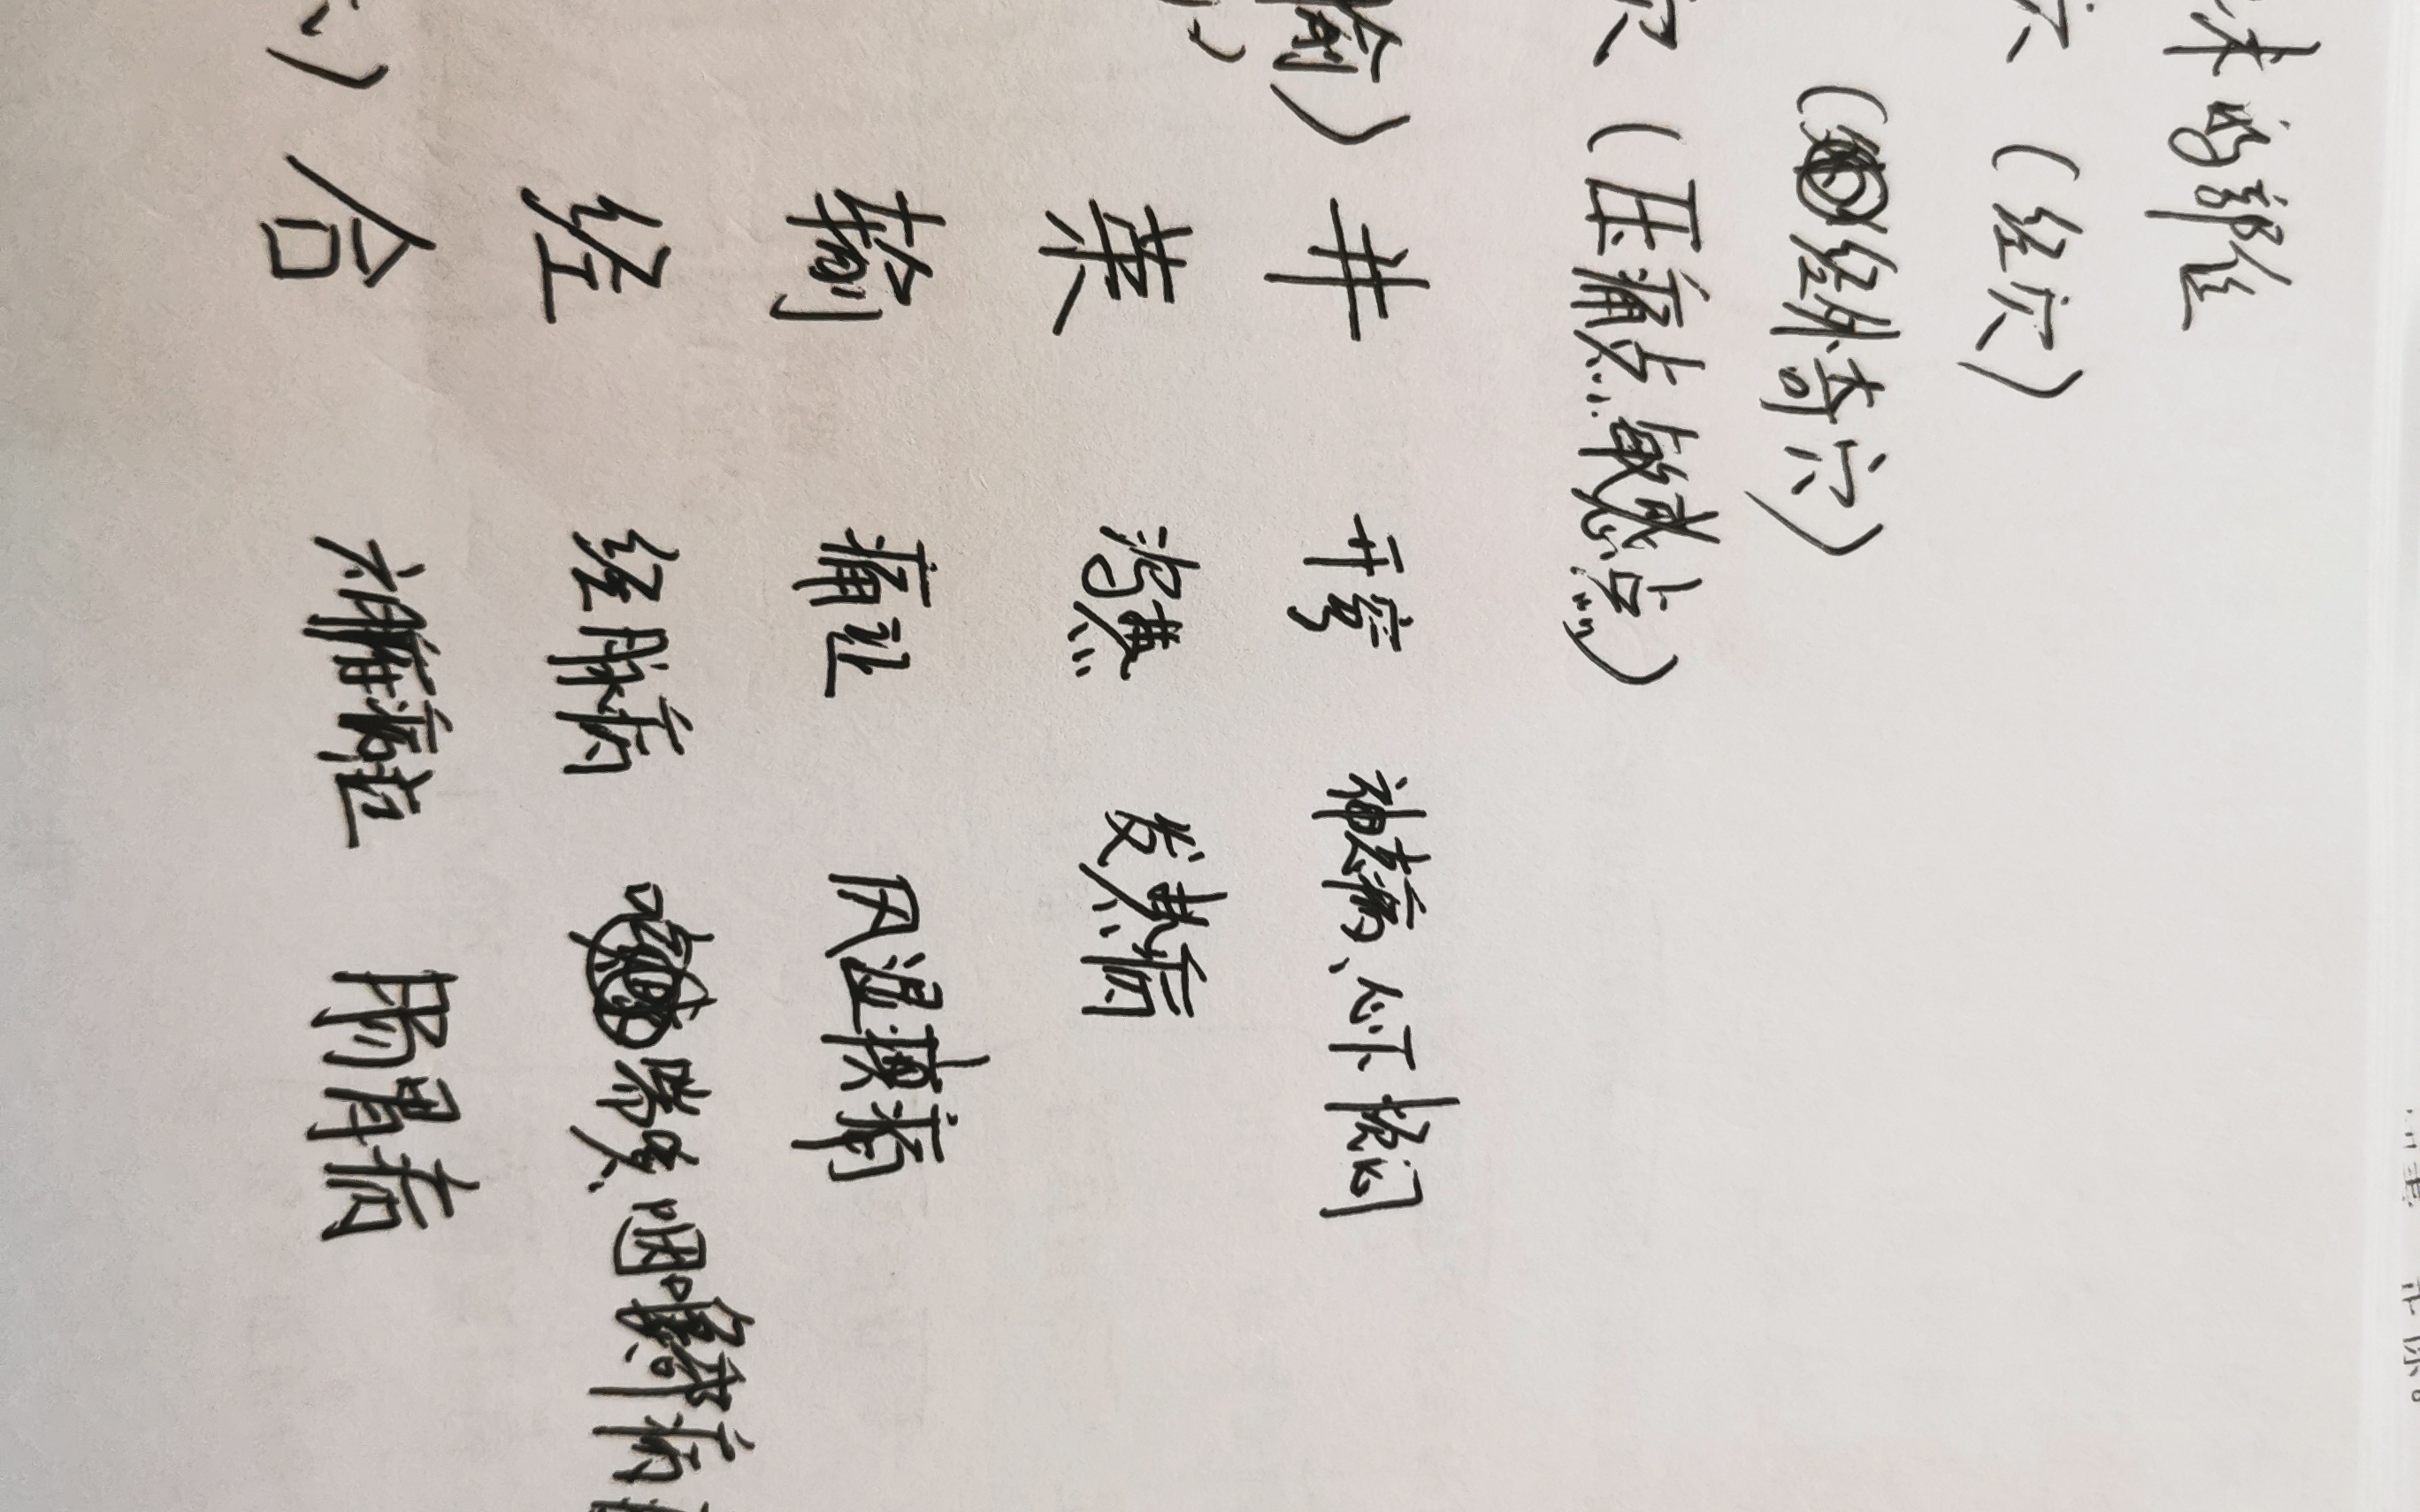 的部位
穴（经穴）
（经外奇穴）
穴（压痛点.敏感点…）
井 开窍 神志病、心下 闷
荥 泻热 发热病
输 痛证 风湿
经 经脉病 咽喉病
合 六腑病症 肠胃病